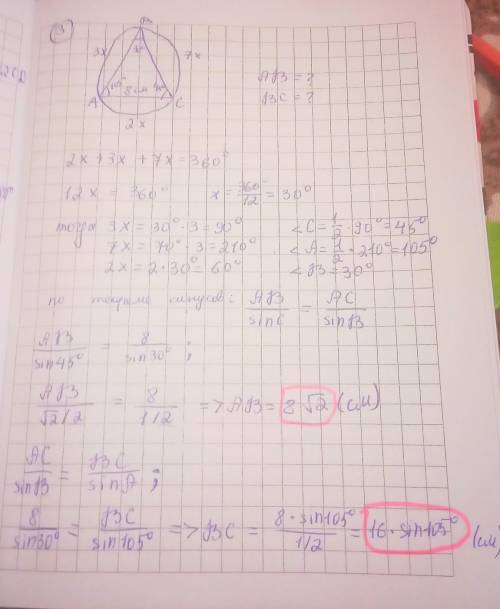 3
B
3x
7x
30°
AB = ?
BC = ?
105°
8 см
45°
A
C
2x
2x + 3x + 7x = 360°
12x = 360° x = 360°/12 = 30°
тогда 3x = 30° · 3 = 90° <C = 1/2 · 90° = 45°
7x = 70° · 3 = 210° <A = 1/2 · 210° = 105°
2x = 2 · 30° = 60° <B = 30°
по теореме синусов: AB/sinC = AC/sinB
AB/sin45° = 8/sin30° ;
AB/√2/2 = 8/1/2 => AB = 8√2 (см)
AC/sinB = BC/sinA ;
8/sin30° = BC/sin105° => BC = 8 · sin105°/1/2 = 16 · sin105° (см)